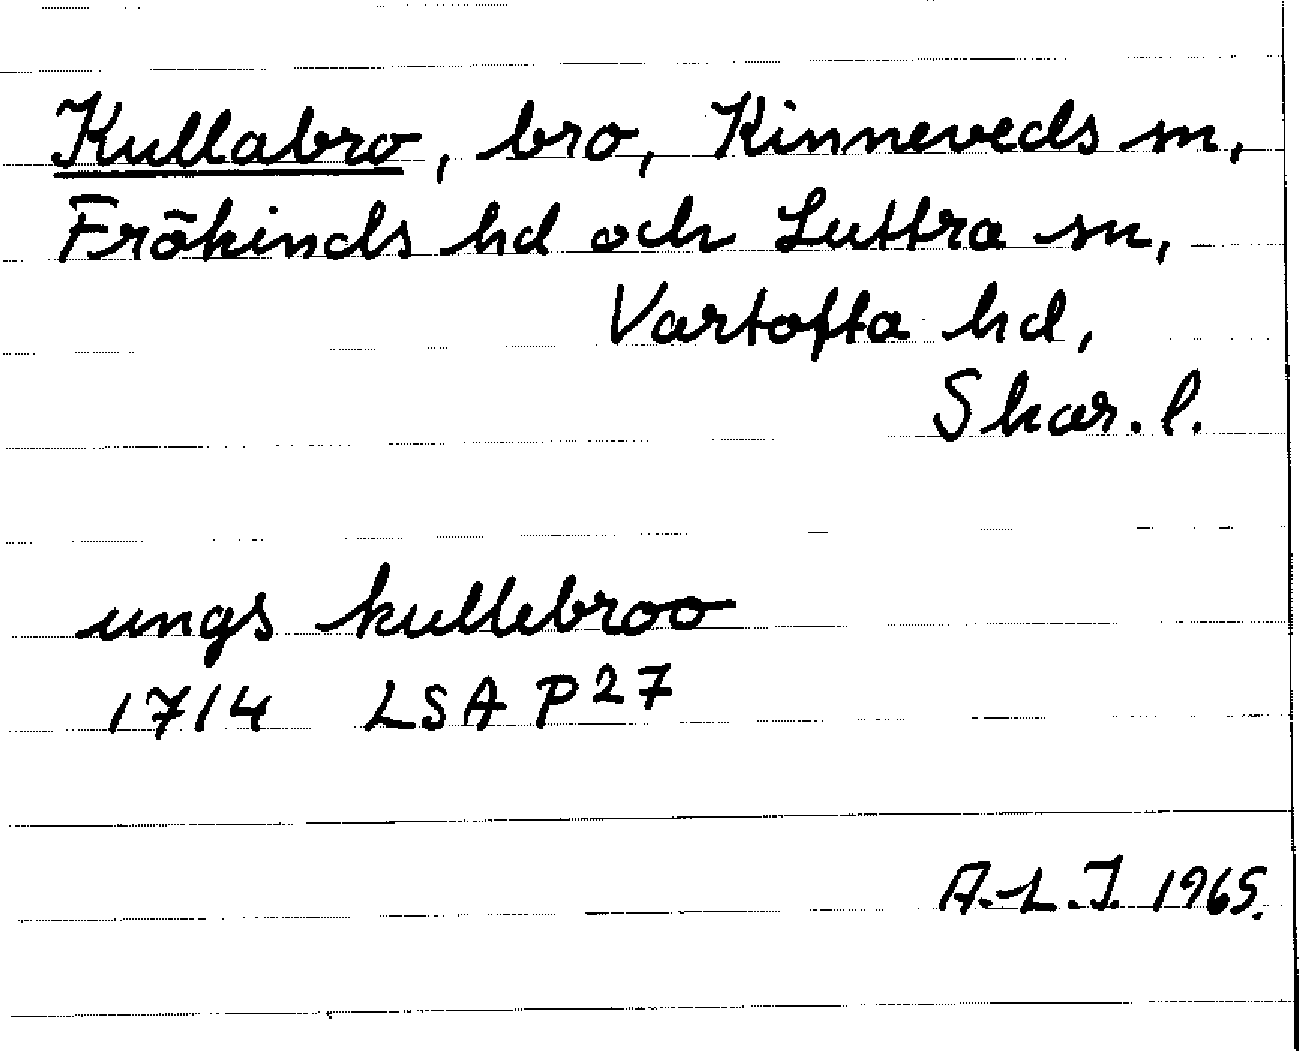 Kullabro, bro, Kinneveds sn,
Frökinds hd och Luttra sn,
Vartofta hd,
Skar. l.
ungs kullebroo
1714 LSA P27
A.-L.J. 1965.